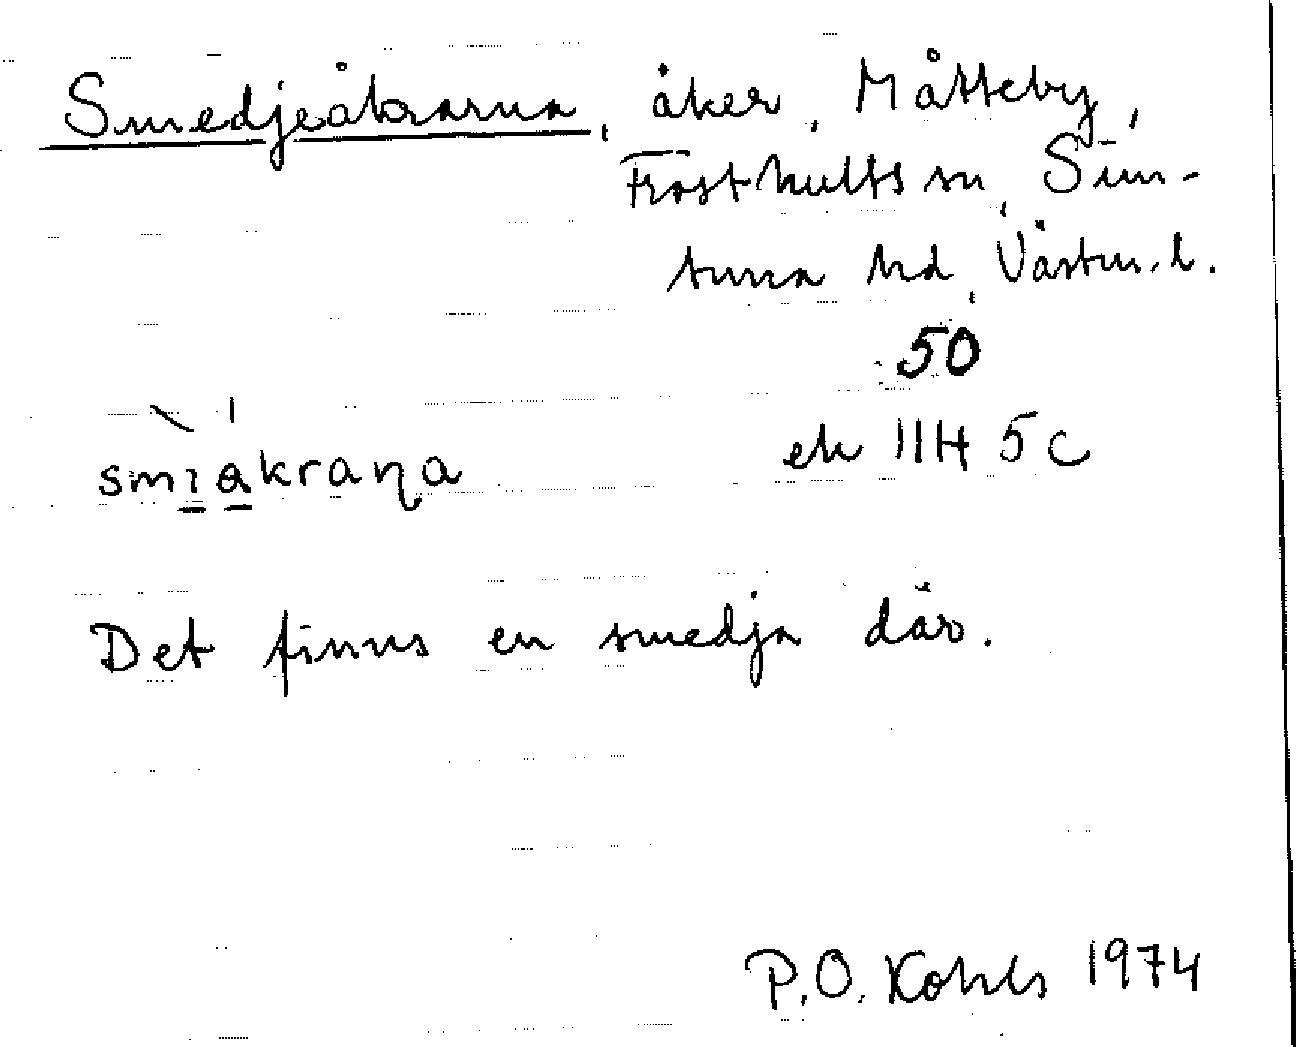 Smedjeåkrarna, åker, Måtteby,
Frösthults sn, Sim-
tuna hd, Västm. l.
50
ek 11H 5c
smiakraṇa
Det finns en smedja där.
P.O. Kohls 1974